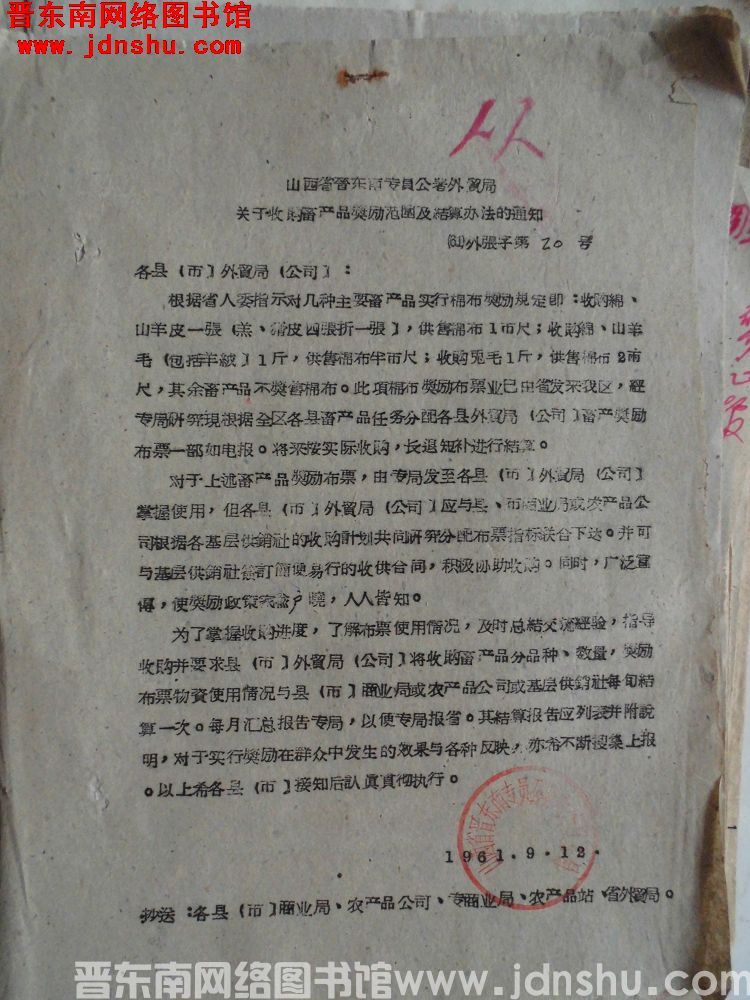 晋东南网络图书馆
www.jdnshu.com
山西省晋东南专員公署外貿局
关于收购畜产品獎励范围及結算办法的通知
(61)外張字第 20 号
各县（市）外貿局（公司）：
根据省人委指示对几种主要畜产品实行棉布獎励規定即：收购綿、
山羊皮一張（羔、猾皮四張折一張），供售棉布1市尺；收购綿、山羊
毛（包括羊絨）1斤，供售棉布半市尺；收购兎毛1斤，供售棉布2市
尺，其余畜产品不獎售棉布。此項棉布獎励布票业已由省发来我区，經
专局研究現根据全区各县畜产品任务分配各县外貿局（公司）畜产獎励
布票一部如电报。将来按实际收购，长退短补进行結算。
对于上述畜产品獎励布票，由专局发至各县（市）外貿局（公司）
掌握使用，但各县（市）外貿局（公司）应与县、市商业局或农产品公
司根据各基层供銷社的收购計划共同研究分配布票指标联合下达。并可
与基层供銷社簽訂簡便易行的收供合同，积极协助收购。同时，广泛宣
傳，使獎励政策家喻户曉，人人皆知。
为了掌握收购进度，了解布票使用情况，及时总結交流經驗，指导
收购并要求县（市）外貿局（公司）将收购畜产品分品种、数量，奖励
布票物資使用情况与县（市）商业局或农产品公司或基层供銷社每旬結
算一次。每月汇总报告专局，以便专局报省。其結算报告应列表并附說
明，对于实行獎励在群众中发生的效果与各种反映，亦希不断搜集上报
。以上希各县（市）接知后認眞貫彻执行。
1961.9.12.
抄送：各县（市）商业局、农产品公司、专商业局、农产品站、省外貿局。
晋东南网络图书馆www.jdnshu.com